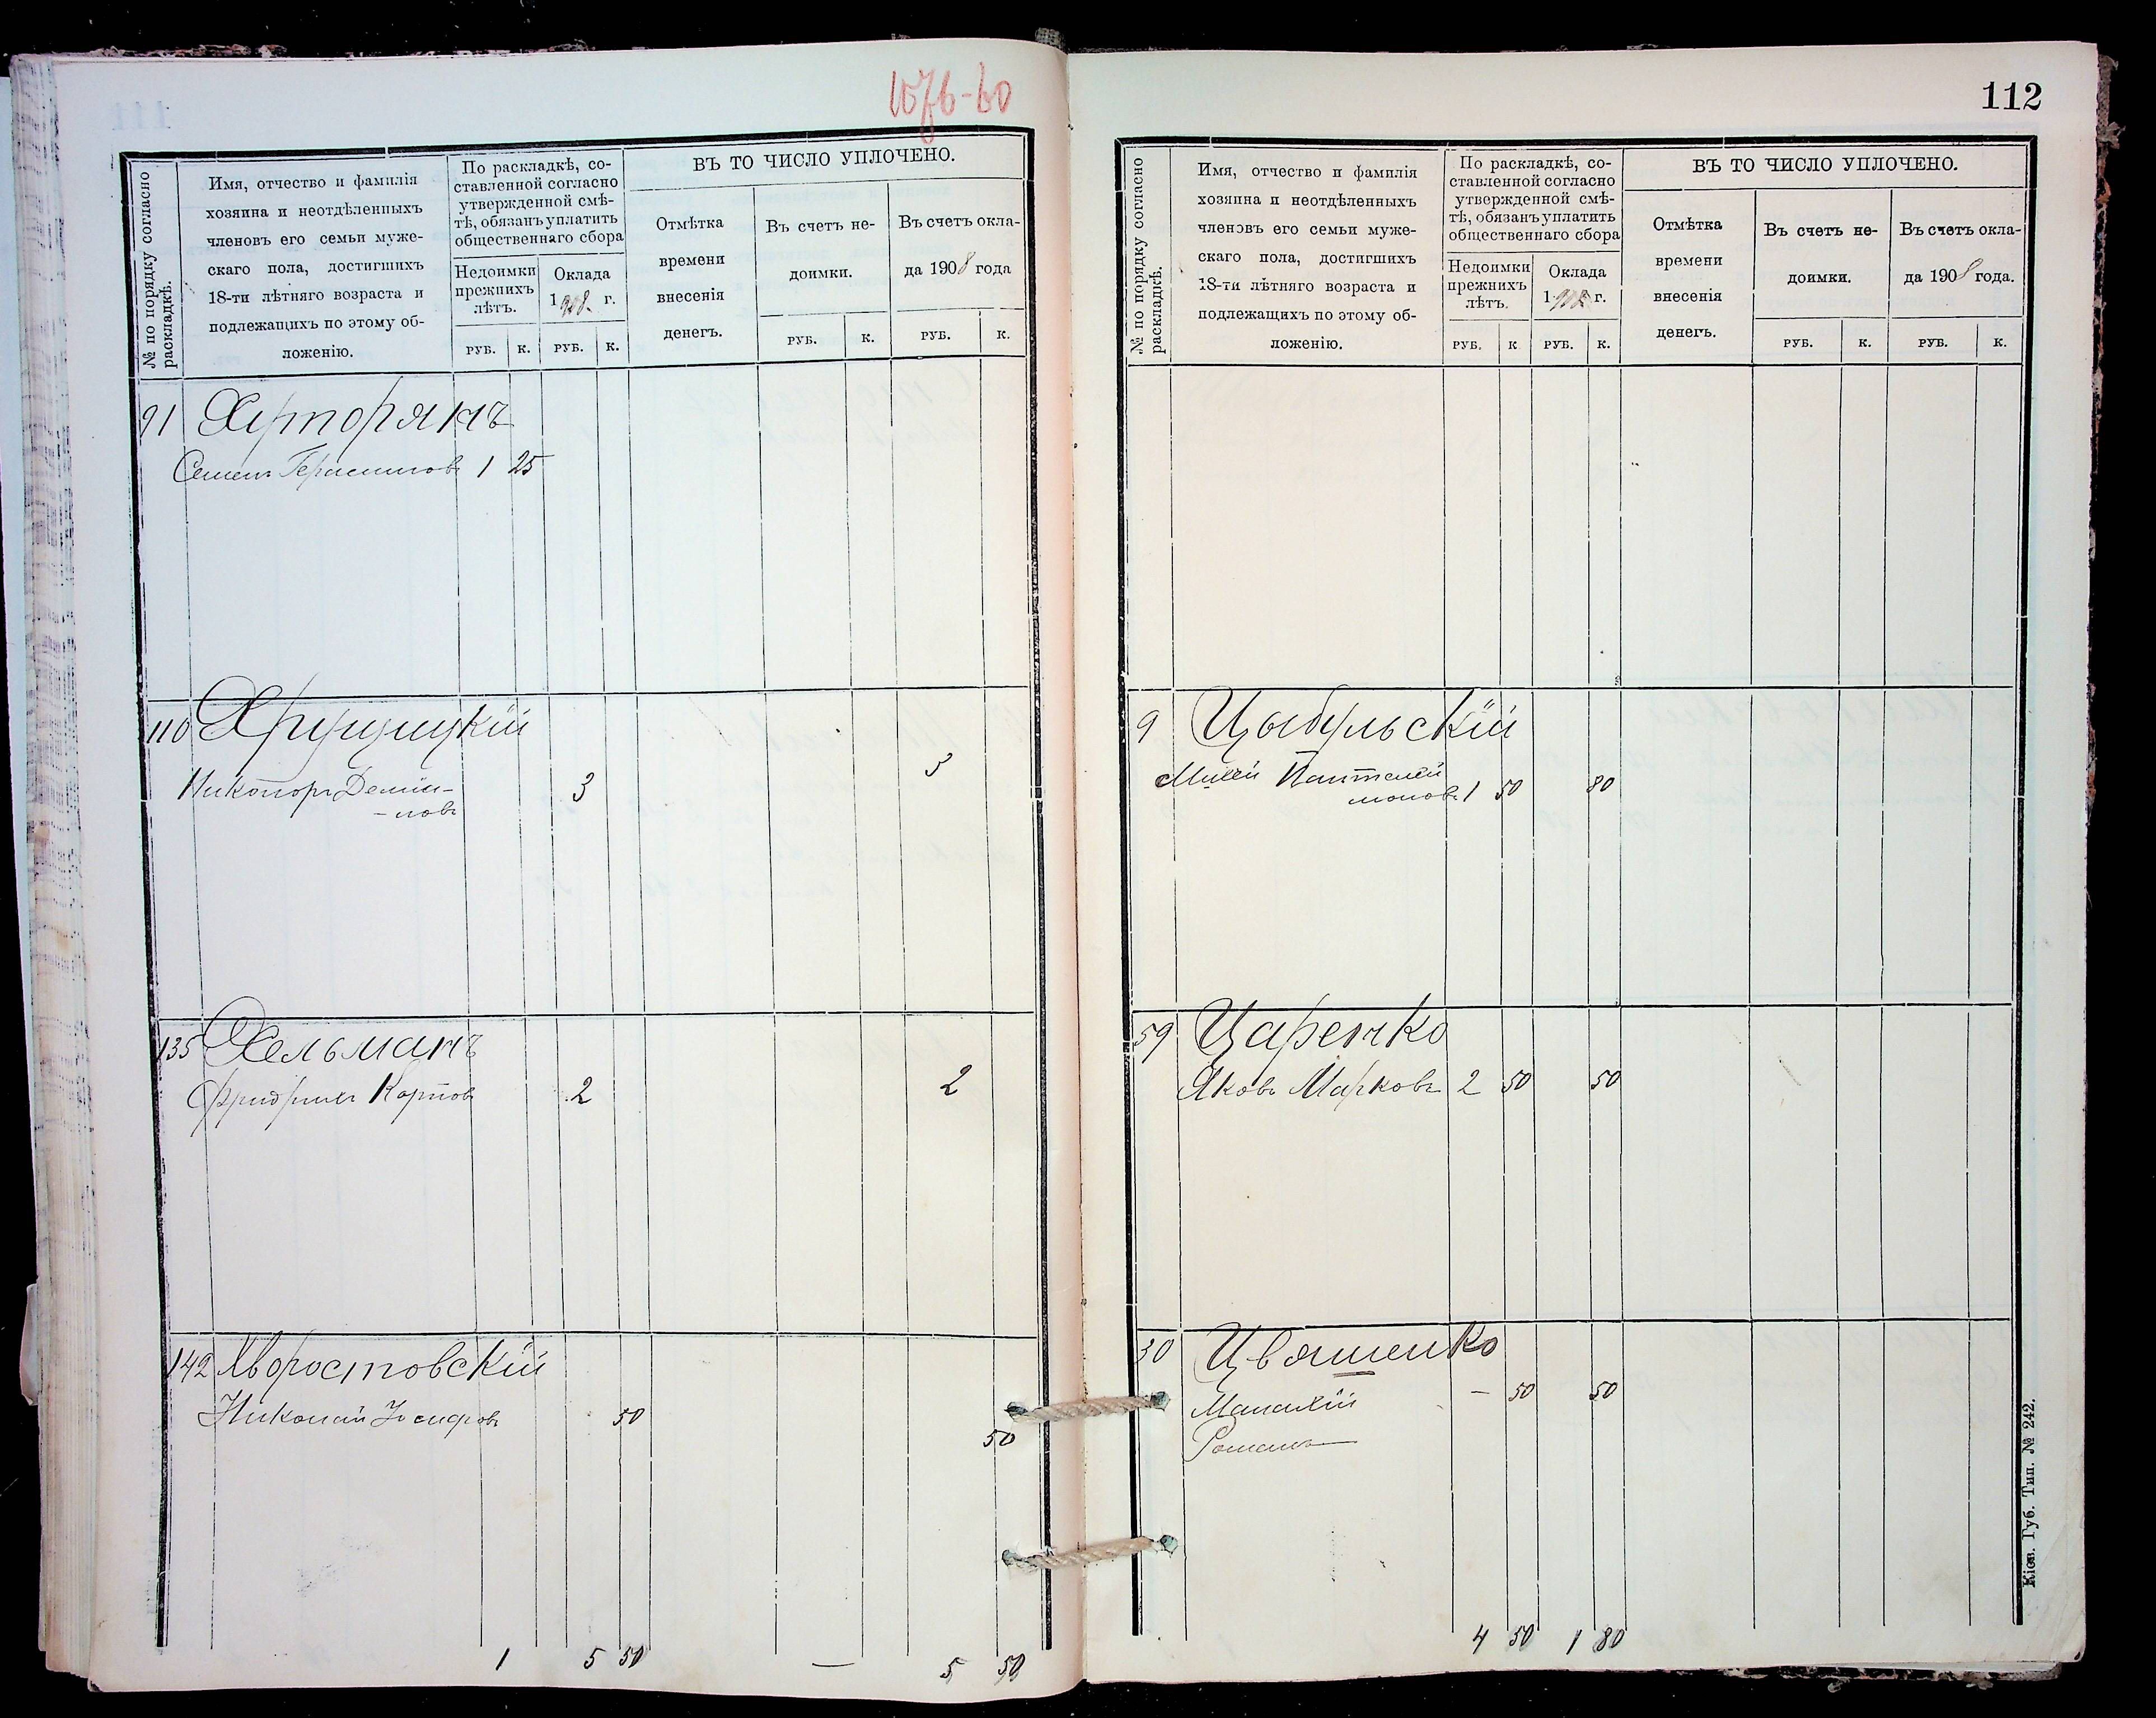 1076-60
№ по порядку согласно
раскладкѣ.
Имя, отчество и фамилія
хозяина и неотдѣленныхъ
членовъ его семьи муже-
скаго пола, достигшихъ
18-ти лѣтняго возраста и
подлежащихъ по этому об-
ложенію.
По раскладкѣ, со-
ставленной согласно
утвержденной смѣ-
тѣ, обязанъ уплатить
общественнаго сбора
Недоимки
прежнихъ
лѣтъ.
Оклада
1908 г.
РУБ. К. РУБ. К.
ВЪ ТО ЧИСЛО УПЛОЧЕНО.
Отмѣтка
времени
внесенія
денегъ.
Въ счетъ не-
доимки.
Въ счетъ окла-
да 1908 года
РУБ. К. РУБ. К.
91
Семенъ Герасимовъ 1 25
110 Хрущицкій
Никоноръ Демія-
-новъ 3 3
135 Хельманъ
Фридрихъ Карповъ 2 2
142 Хворостовскій
Николай Іосифовъ 50 50
1 5 50 — 5 50
112
№ по порядку согласно
раскладкѣ.
Имя, отчество и фамилія
хозяина и неотдѣленныхъ
членовъ его семьи муже-
скаго пола, достигшихъ
18-ти лѣтняго возраста и
подлежащихъ по этому об-
ложенію.
По раскладкѣ, со-
ставленной согласно
утвержденной смѣ-
тѣ, обязанъ уплатить
общественнаго сбора
Недоимки
прежнихъ
лѣтъ.
Оклада
1908 г.
РУБ. К РУБ. К.
ВЪ ТО ЧИСЛО УПЛОЧЕНО.
Отмѣтка
времени
внесенія
денегъ.
Въ счетъ не-
доимки.
Въ счетъ окла-
да 1908 года.
РУБ. К. РУБ. К.
9 Цыбульскій
Михей Пантелей
моновъ 1 50 80
59 Царенко
Яковъ Марковъ 2 50 50
30 Цвяшенко
Малахій — 50 50
Романъ
4 50 1 80
Кіев. Губ. Тип. № 242.